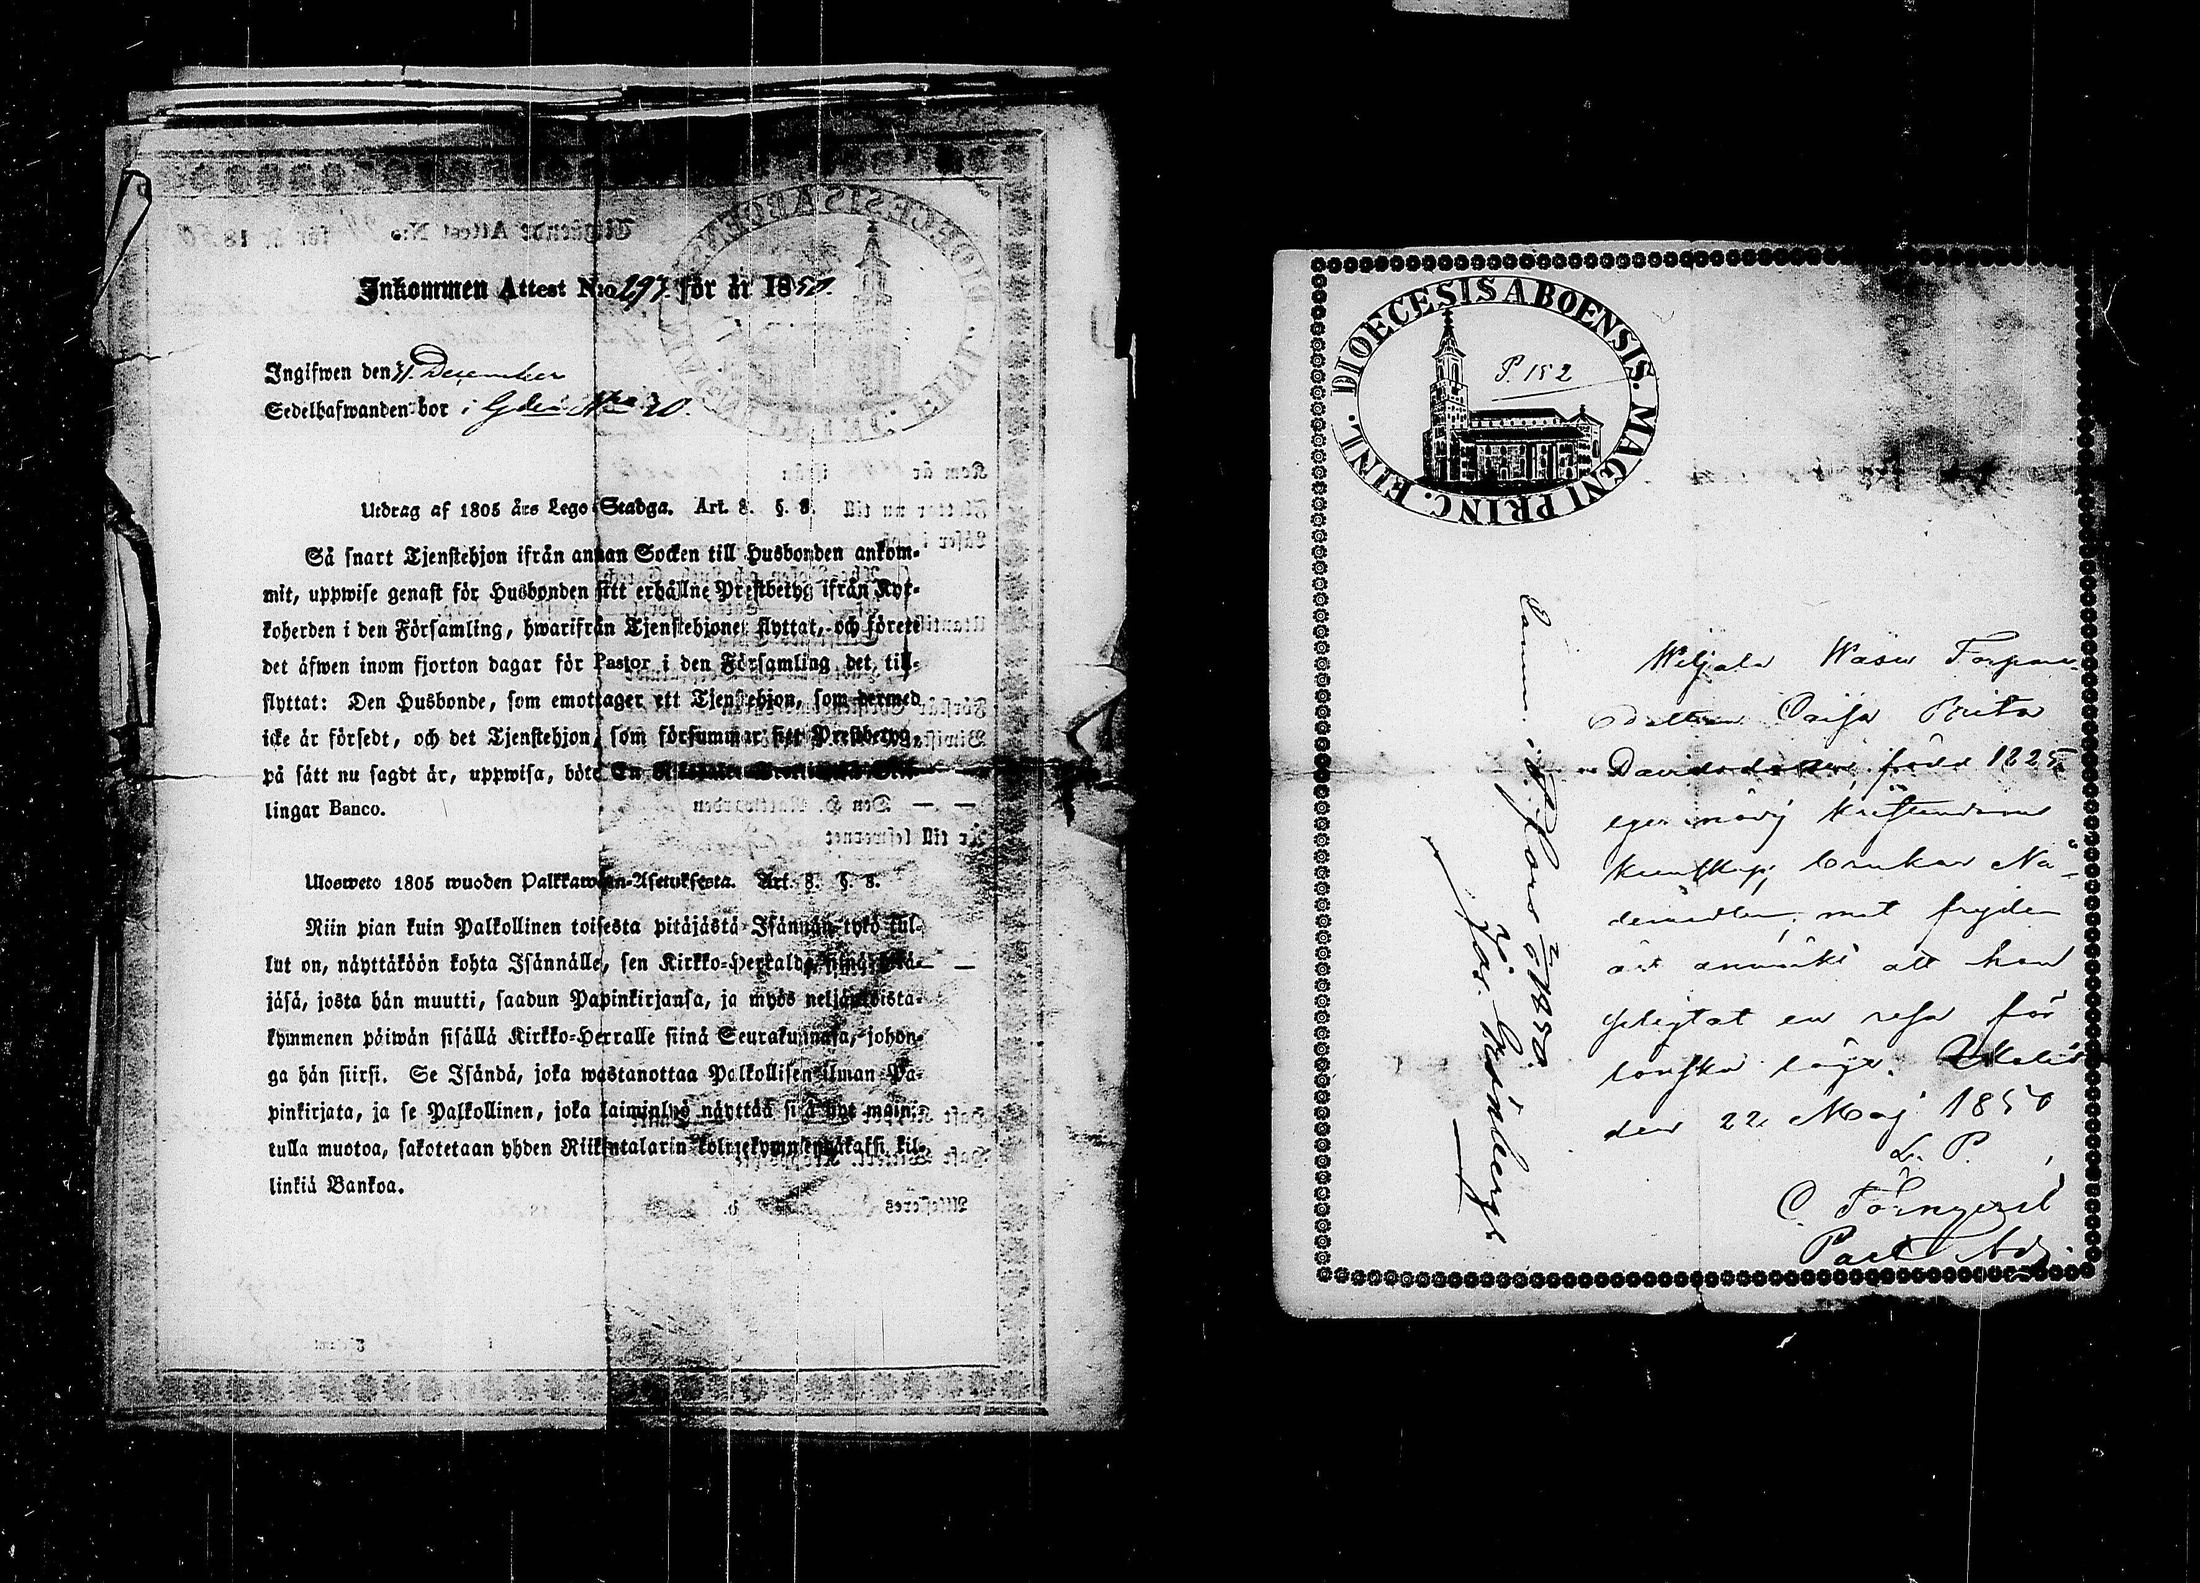 Inkommen Attest N:o 297. för år 1850.
Ingifwen den 31 December
Sedelhafwanden bor i Gden N:o 20.
Utdrag af 1805 års Lego-Stadga. Art. 8. §. 8.
Så snart Tjenstehjon ifrån annan Socken till Husbonden ankom-
mit, uppwise genast för Husbonden sitt erhållne Prestbetyg ifrån Kyr-
koherden i den Församling, hwarifrån Tjenstehjonet flyttat, och förete
det äfwen inom fjorton dagar för Pastor i den Församling det till-
flyttat: Den Husbonde, som emottager ett Tjenstehjon, som dermed
icke är försedt, och det Tjenstehjon, som försummar sitt Prestbetyg,
på sätt nu sagdt är, uppwisa, böte En Skil-
lingar Banco.
Ulosweto 1805 wuoden Palkkawäen-Asetuksesta. Art. 8. §. 8.
Niin pian kuin Palkollinen toisesta pitäjästä Isännän tykö tul-
lut on, näyttäköön kohta Isännälle, sen Kirkko-Herralda siinä pitä-
jäsä, josta hän muutti, saadun Papinkirjansa, ja myös neljäntoista-
kymmenen päiwän sisällä Kirkko-Herralle siinä Seurakunnasa, johon-
ga hän siirsi. Se Isändä, joka wastanottaa Palkollisen ilman Pa-
pinkirjata, ja se Palkollinen, joka laiminlyö näyttää sitä nyt maini-
tulla muotoa, sakotetaan yhden Riikintalarin kolmekymmentäkaksi kil-
linkiä Bankoa.
DIOECESIS ABOENSIS. MAGNI PRINC. FINL.
P. 152
Weljala Wäser Torpare-
dottren Caisa Brita
Davidsdotter född 1825
eger nöjg Kristendoms
kunskap, brukar Nå-
demedlen, mot frejden
är anmärkt att hon
en resa för
lönska läge.
den 22 Maj 1850
L. P.
C. Törnqvist
Past. Adj.
1850.
Jos. Grönberg